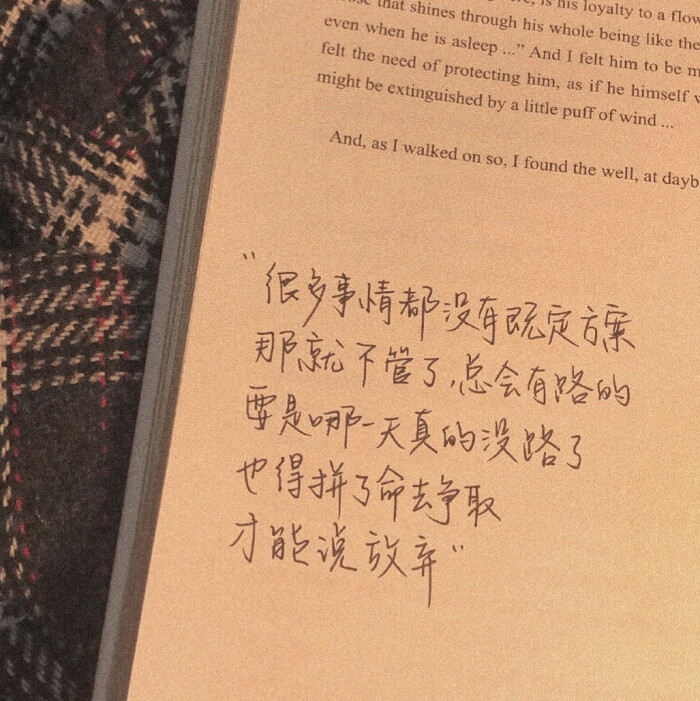 is his loyalty to a flow
that shines through his whole being like the
even when he is asleep ...” And I felt him to be m
felt the need of protecting him, as if he himself
might be extinguished by a little puff of wind ...
And, as I walked on so, I found the well, at dayb
“很多事情都没有既定方案
那就不管了,总会有路的
要是哪一天真的没路了
也得拼了命去争取
才能说放弃”